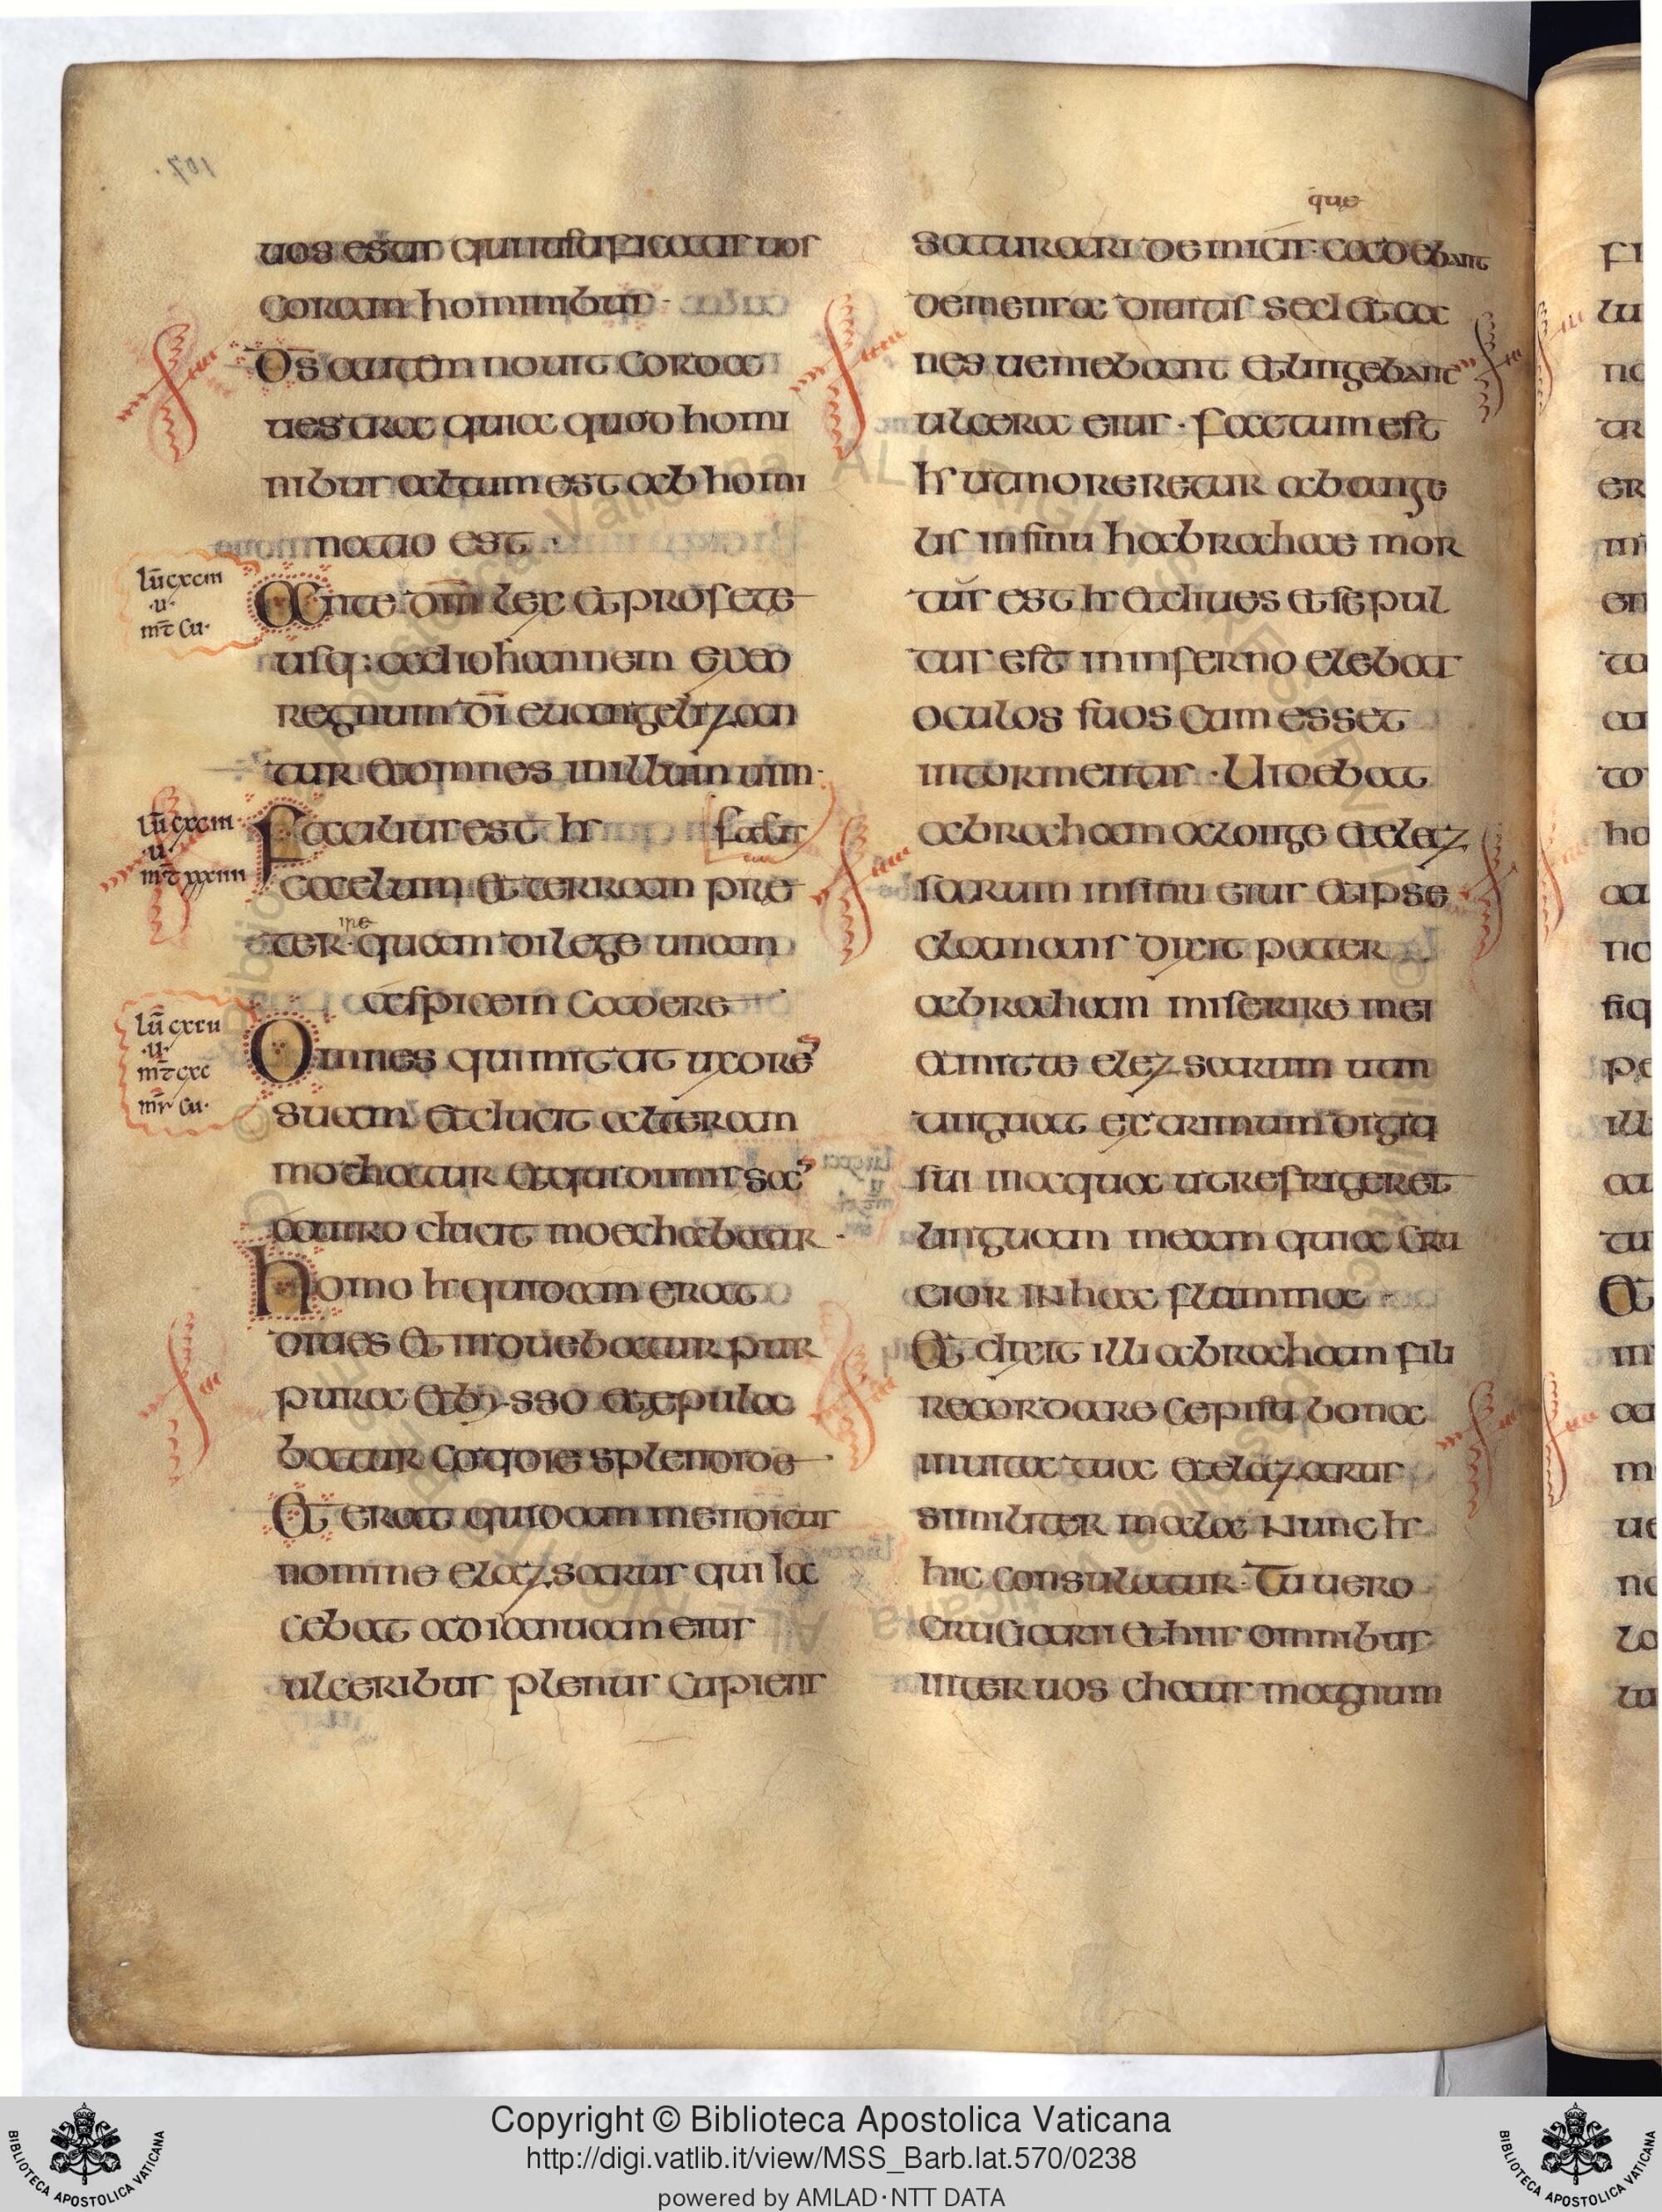 uos estis qui iustificatis uos
coram hominibus ·
d̄s autem nouit corda
uestra quia quod homi
nibus altum est ab homi
natio est ·
lū cxciii
·u·
mt̄ cu·
Ante om̄ lex et profete
usq: ad iohannem exeo
regnum dī euangelizan
tur et omnes in illum uim·
lū cxciiii
u·
Facilius est hr̄
faciunt
caelum et terram pre
ter· quam dilege unam
ine
aspicem cadere
lū cxcu
·u·
mt̄ cxc
mr̄ cu·
Omnes qui mitat uxorē
suam et ducit alteram
mochatur et qui dimissā
a uiro ducit moechabatur ·
Homo hr̄ quidam erat
diues et induebatur pur
pura et bysso et epula
batur cotidie splendide ·
Et erat quidam mendicus
nomine elazsarus qui ia
cebat ad ianuam eius
ulceribus plenus cupiens
que
saturari de micis· cadebant
de mensa diuitis sed et ca
nes ueniebant et lingebant
ulcera eius · factum est
hr̄ ut moreretur ab ange
lis in sinu habrachae mor
tuus est hr̄ et diues et sepul
tus est in inferno elebat
oculos suos cum esset
in tormentis · Uidebat
abracham a longe et elaz
sarum in sinu eius et ipse
clamans dixit pater
abracham miserire mei
et mitte elezsarum utin
tinguat extrimum digiti
sui in aqua ut refrigeret
linguam meam quia cru
cior in hac flamma ·
Et dixit illi abracham fili
recordare cepisti bona
in uita tua et elazarus
similiter mala nunc hr̄
hic consulatur· Tu uero
cruciaris et in his omnibus
inter uos chaus magnum
Copyright © Biblioteca Apostolica Vaticana
http://digi.vatlib.it/view/MSS_Barb.lat.570/0238
powered by AMLAD·NTT DATA
BIBLIOTECA APOSTOLICA VATICANA
BIBLIOTECA APOSTOLICA VATICANA